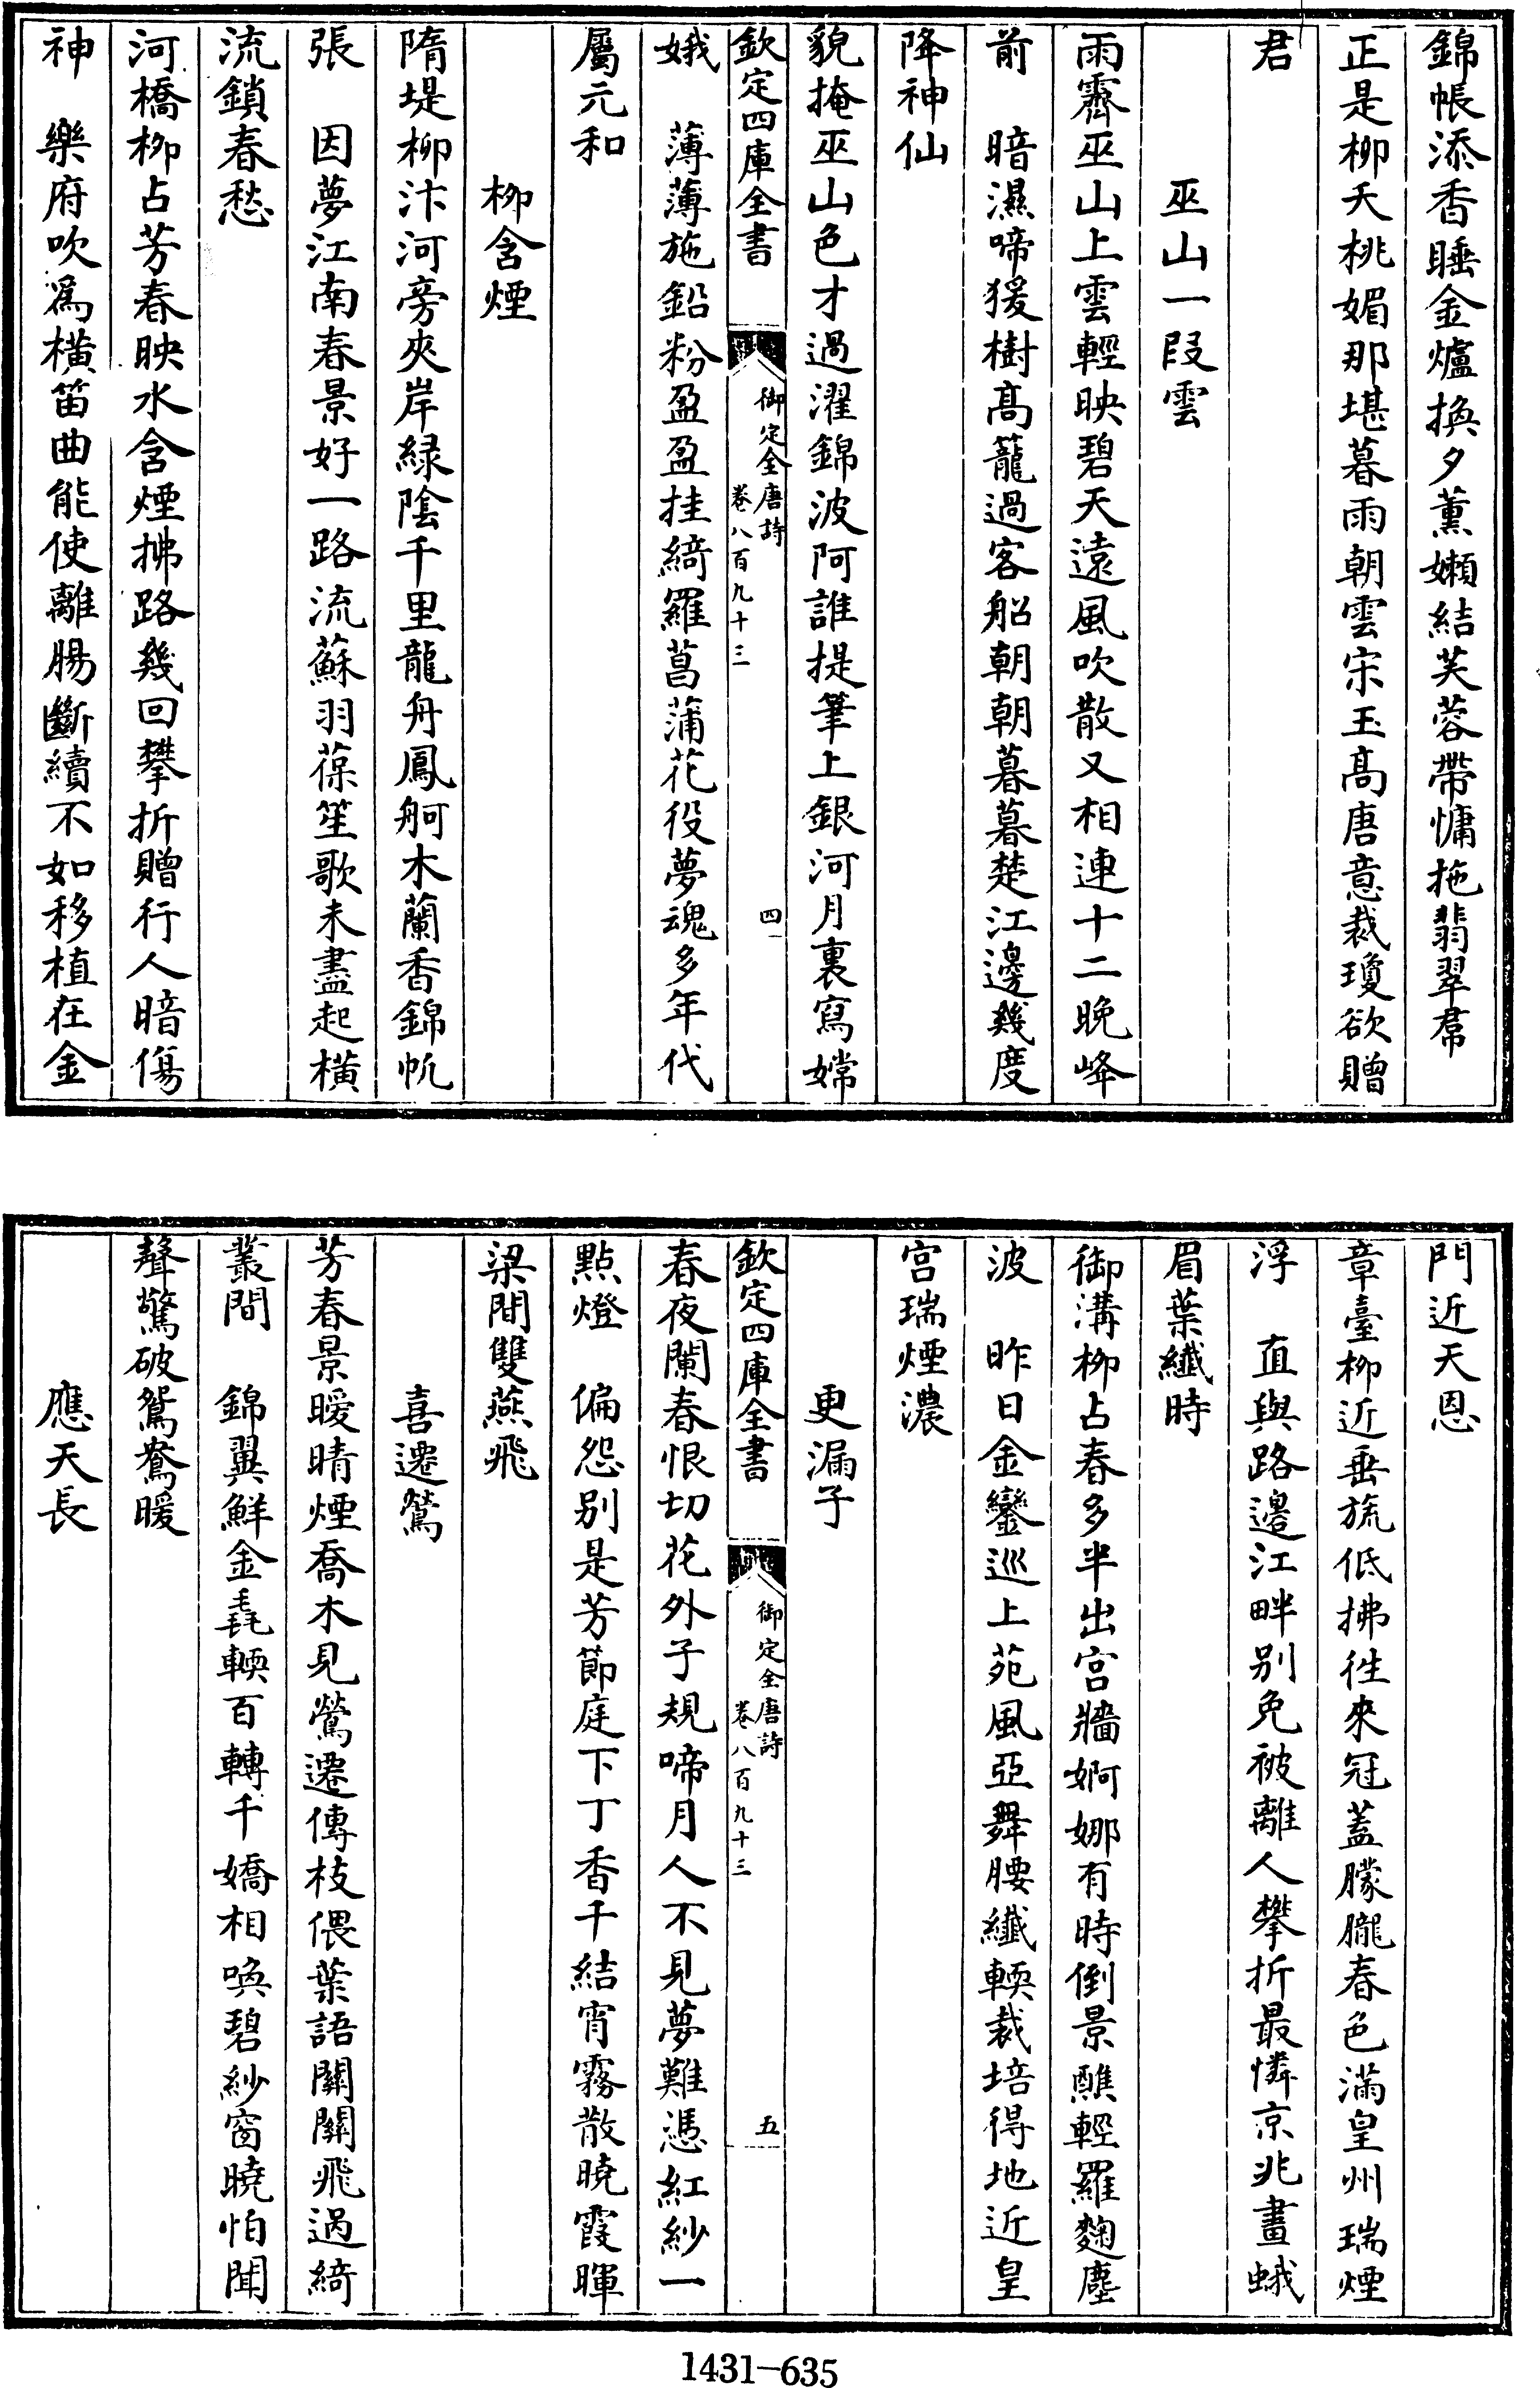 錦帳添香睡金爐換夕薰嬾結芙蓉帶慵拖翡翠帬
正是柳夭桃媚那堪暮雨朝雲宋玉髙唐意裁瓊欲贈
君
巫山一段雲
雨霽巫山上雲輕映碧天逺風吹散又相連十二晚峰
前　暗濕啼猨樹髙籠過客船朝朝暮暮楚江邊幾度
降神仙
貌掩巫山色才過濯錦波阿誰提筆上銀河月裏寫嫦
欽定四庫全書
御定全唐詩
卷八百九十三
四
娥　薄薄施鉛粉盈盈挂綺羅菖蒲花役夢魂多年代
屬元和
柳含煙
隋堤柳汴河旁夾岸緑陰千里龍舟鳳舸木蘭香錦帆
張　因夢江南春景好一路流蘇羽葆笙歌未盡起橫
流鎖春愁
河橋柳占芳春映水含煙拂路幾回攀折贈行人暗傷
神　樂府吹為橫笛曲能使離腸斷續不如移植在金
門近天恩
章臺柳近垂旒低拂徃來冠蓋朦朧春色滿皇州瑞煙
浮　直與路邊江畔别免被離人攀折最憐京兆畫蛾
眉葉纖時
御溝柳占春多半出宫牆婀娜有時倒景醮輕羅麴塵
波　昨日金鑾巡上苑風亞舞腰纖輭裁培得地近皇
宫瑞煙濃
更漏子
欽定四庫全書
御定全唐詩
卷八百九十三
五
春夜闌春恨切花外子規啼月人不見夢難憑紅紗一
點燈　偏怨别是芳節庭下丁香千結宵霧散曉霞暉
梁間雙燕飛
喜遷鶯
芳春景曖晴煙喬木見鶯遷傳枝偎葉語關關飛過綺
叢間　錦翼鮮金毳輭百轉千嬌相喚碧紗窗曉怕聞
聲驚破鴛鴦暖
應天長
1431-635